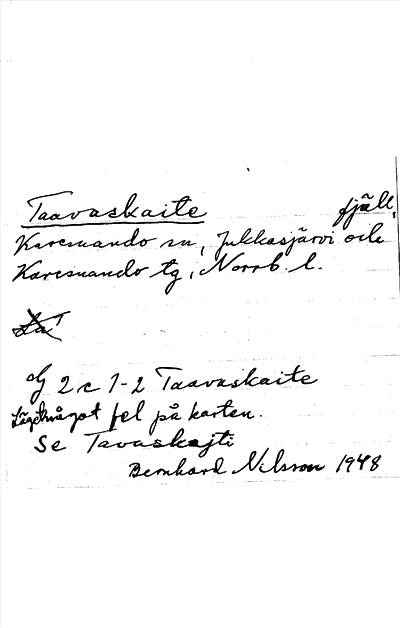 Taavaskaite fjäll,
Karesuando sn, Jukkasjärvi och
Karesuando tg, Norrb. l.
La!
G 2 c 1-2 Taavaskaite
Läget något fel på karten.
Se Tavaskajti
Bernhard Nilsson 1948